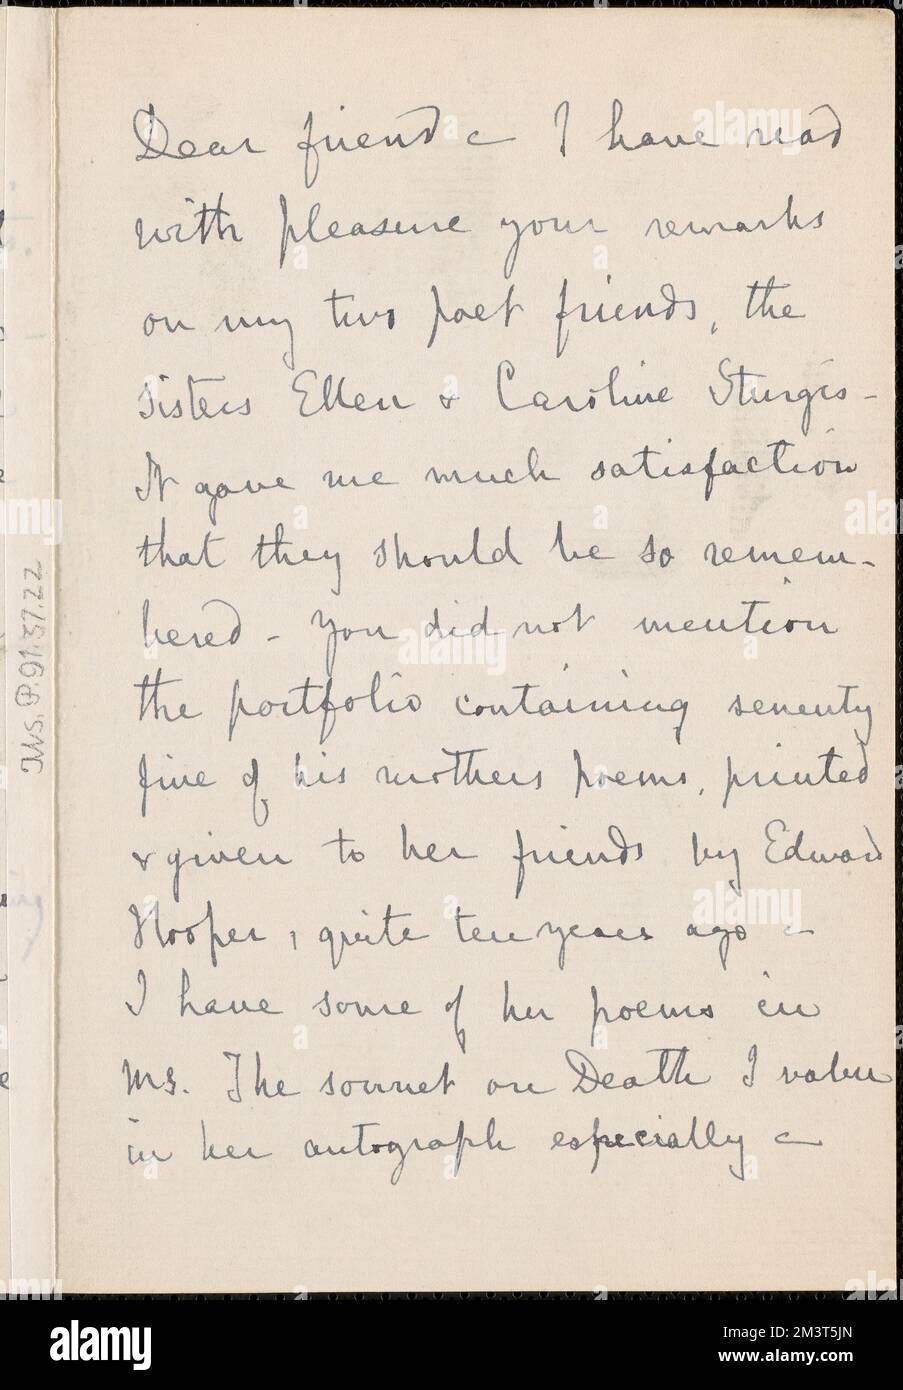 Dear friend – I have read
with pleasure your remarks
on my two poet friends, the
sisters Ellen & Caroline Sturgis –
It gave me much satisfaction
that they should be so remem-
bered – You did not mention
the portfolio containing seventy
five of his mothers poems, printed
& given to her friends by Edward
Hooper, quite ten years ago –
I have some of her poems in
Ms. The sonnet on Death I value
in her autograph especially –
Ms. P.91.37.22
alamy
Image ID: 2M3T5JN
www.alamy.com